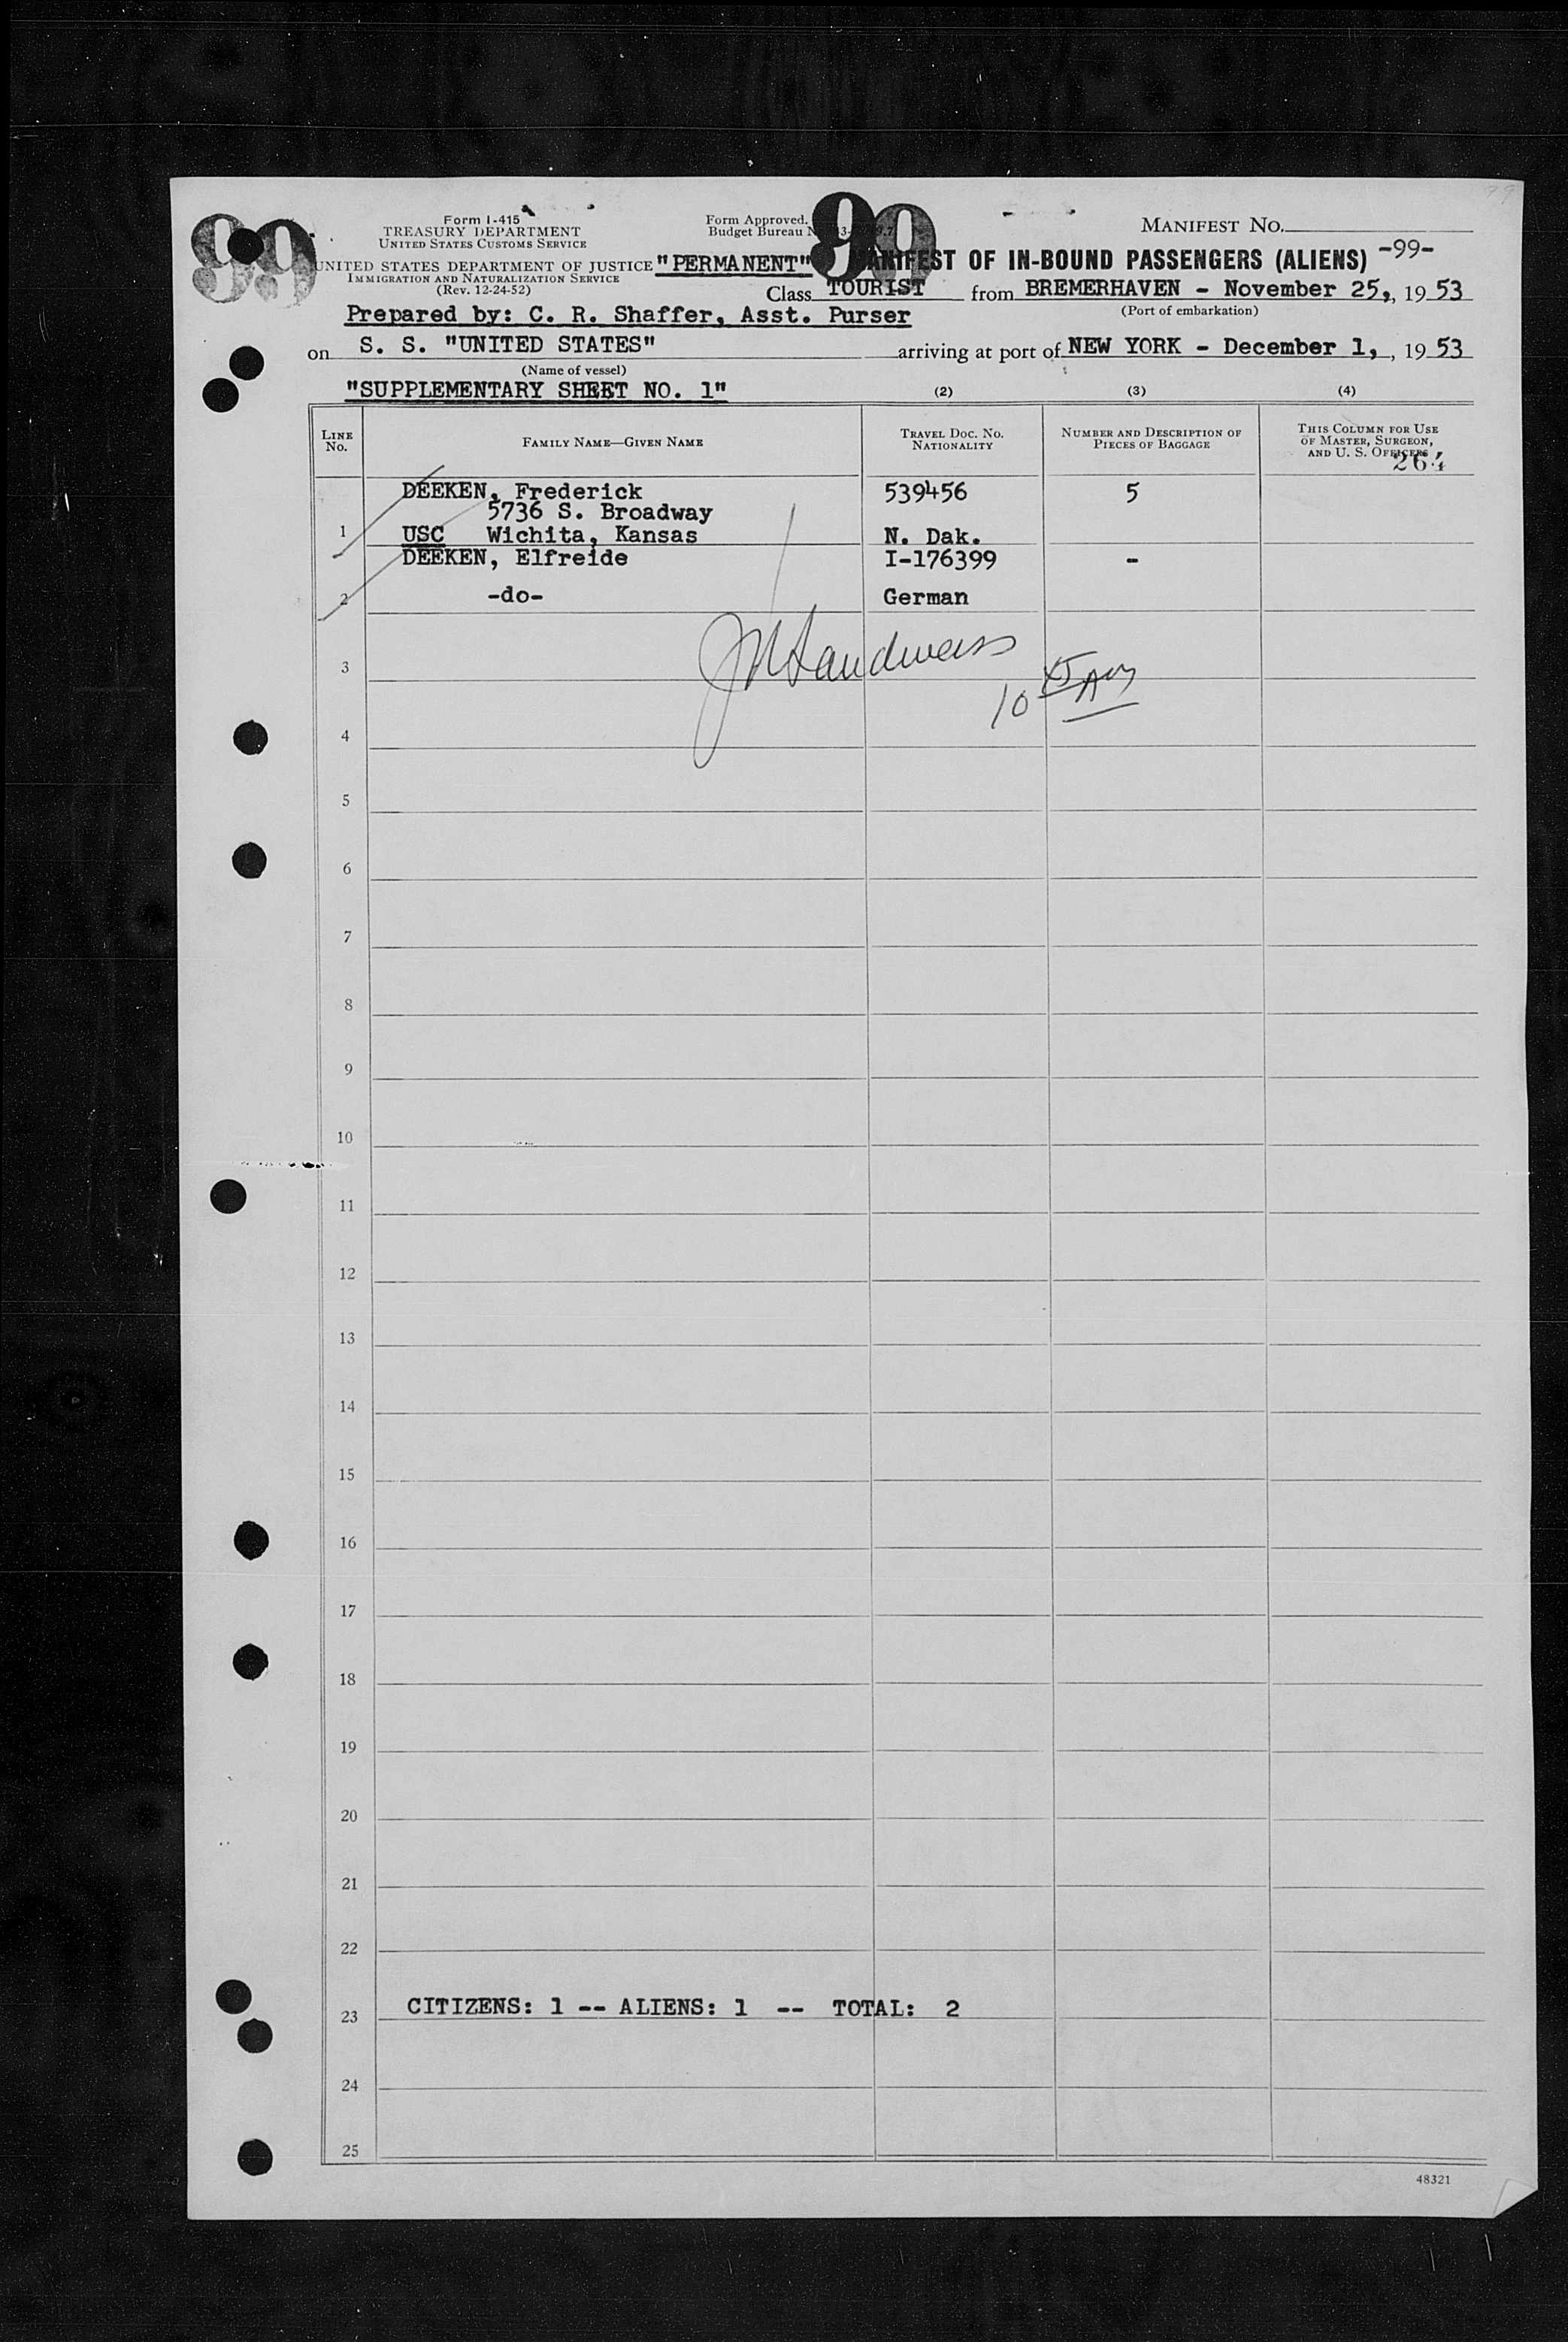 99
Form I-415
TREASURY DEPARTMENT
UNITED STATES CUSTOMS SERVICE
UNITED STATES DEPARTMENT OF JUSTICE
IMMIGRATION AND NATURALIZATION SERVICE
(Rev. 12-24-52)
Form Approved.
Budget Bureau
99
MANIFEST NO.
"PERMANENT" MANIFEST OF IN-BOUND PASSENGERS (ALIENS) -99-
Class TOURIST from BREMERHAVEN - November 25,, 19 53
(Port of embarkation)
Prepared by: C. R. Shaffer, Asst. Purser
on S. S. "UNITED STATES" arriving at port of NEW YORK - December 1,, 19 53
(Name of vessel)
"SUPPLEMENTARY SHEET NO. 1" (2) (3) (4)
LINE NO. FAMILY NAME—GIVEN NAME TRAVEL DOC. NO. NATIONALITY NUMBER AND DESCRIPTION OF PIECES OF BAGGAGE THIS COLUMN FOR USE OF MASTER, SURGEON, AND U. S. OFFICERS
264
DEEKEN, Frederick 539456 5
5736 S. Broadway
1 USC Wichita, Kansas N. Dak.
DEEKEN, Elfreide I-176399 -
2 -do- German
3
4
5
6
7
8
9
10
11
12
13
14
15
16
17
18
19
20
21
22
23 CITIZENS: 1 -- ALIENS: 1 -- TOTAL: 2
24
25
48321